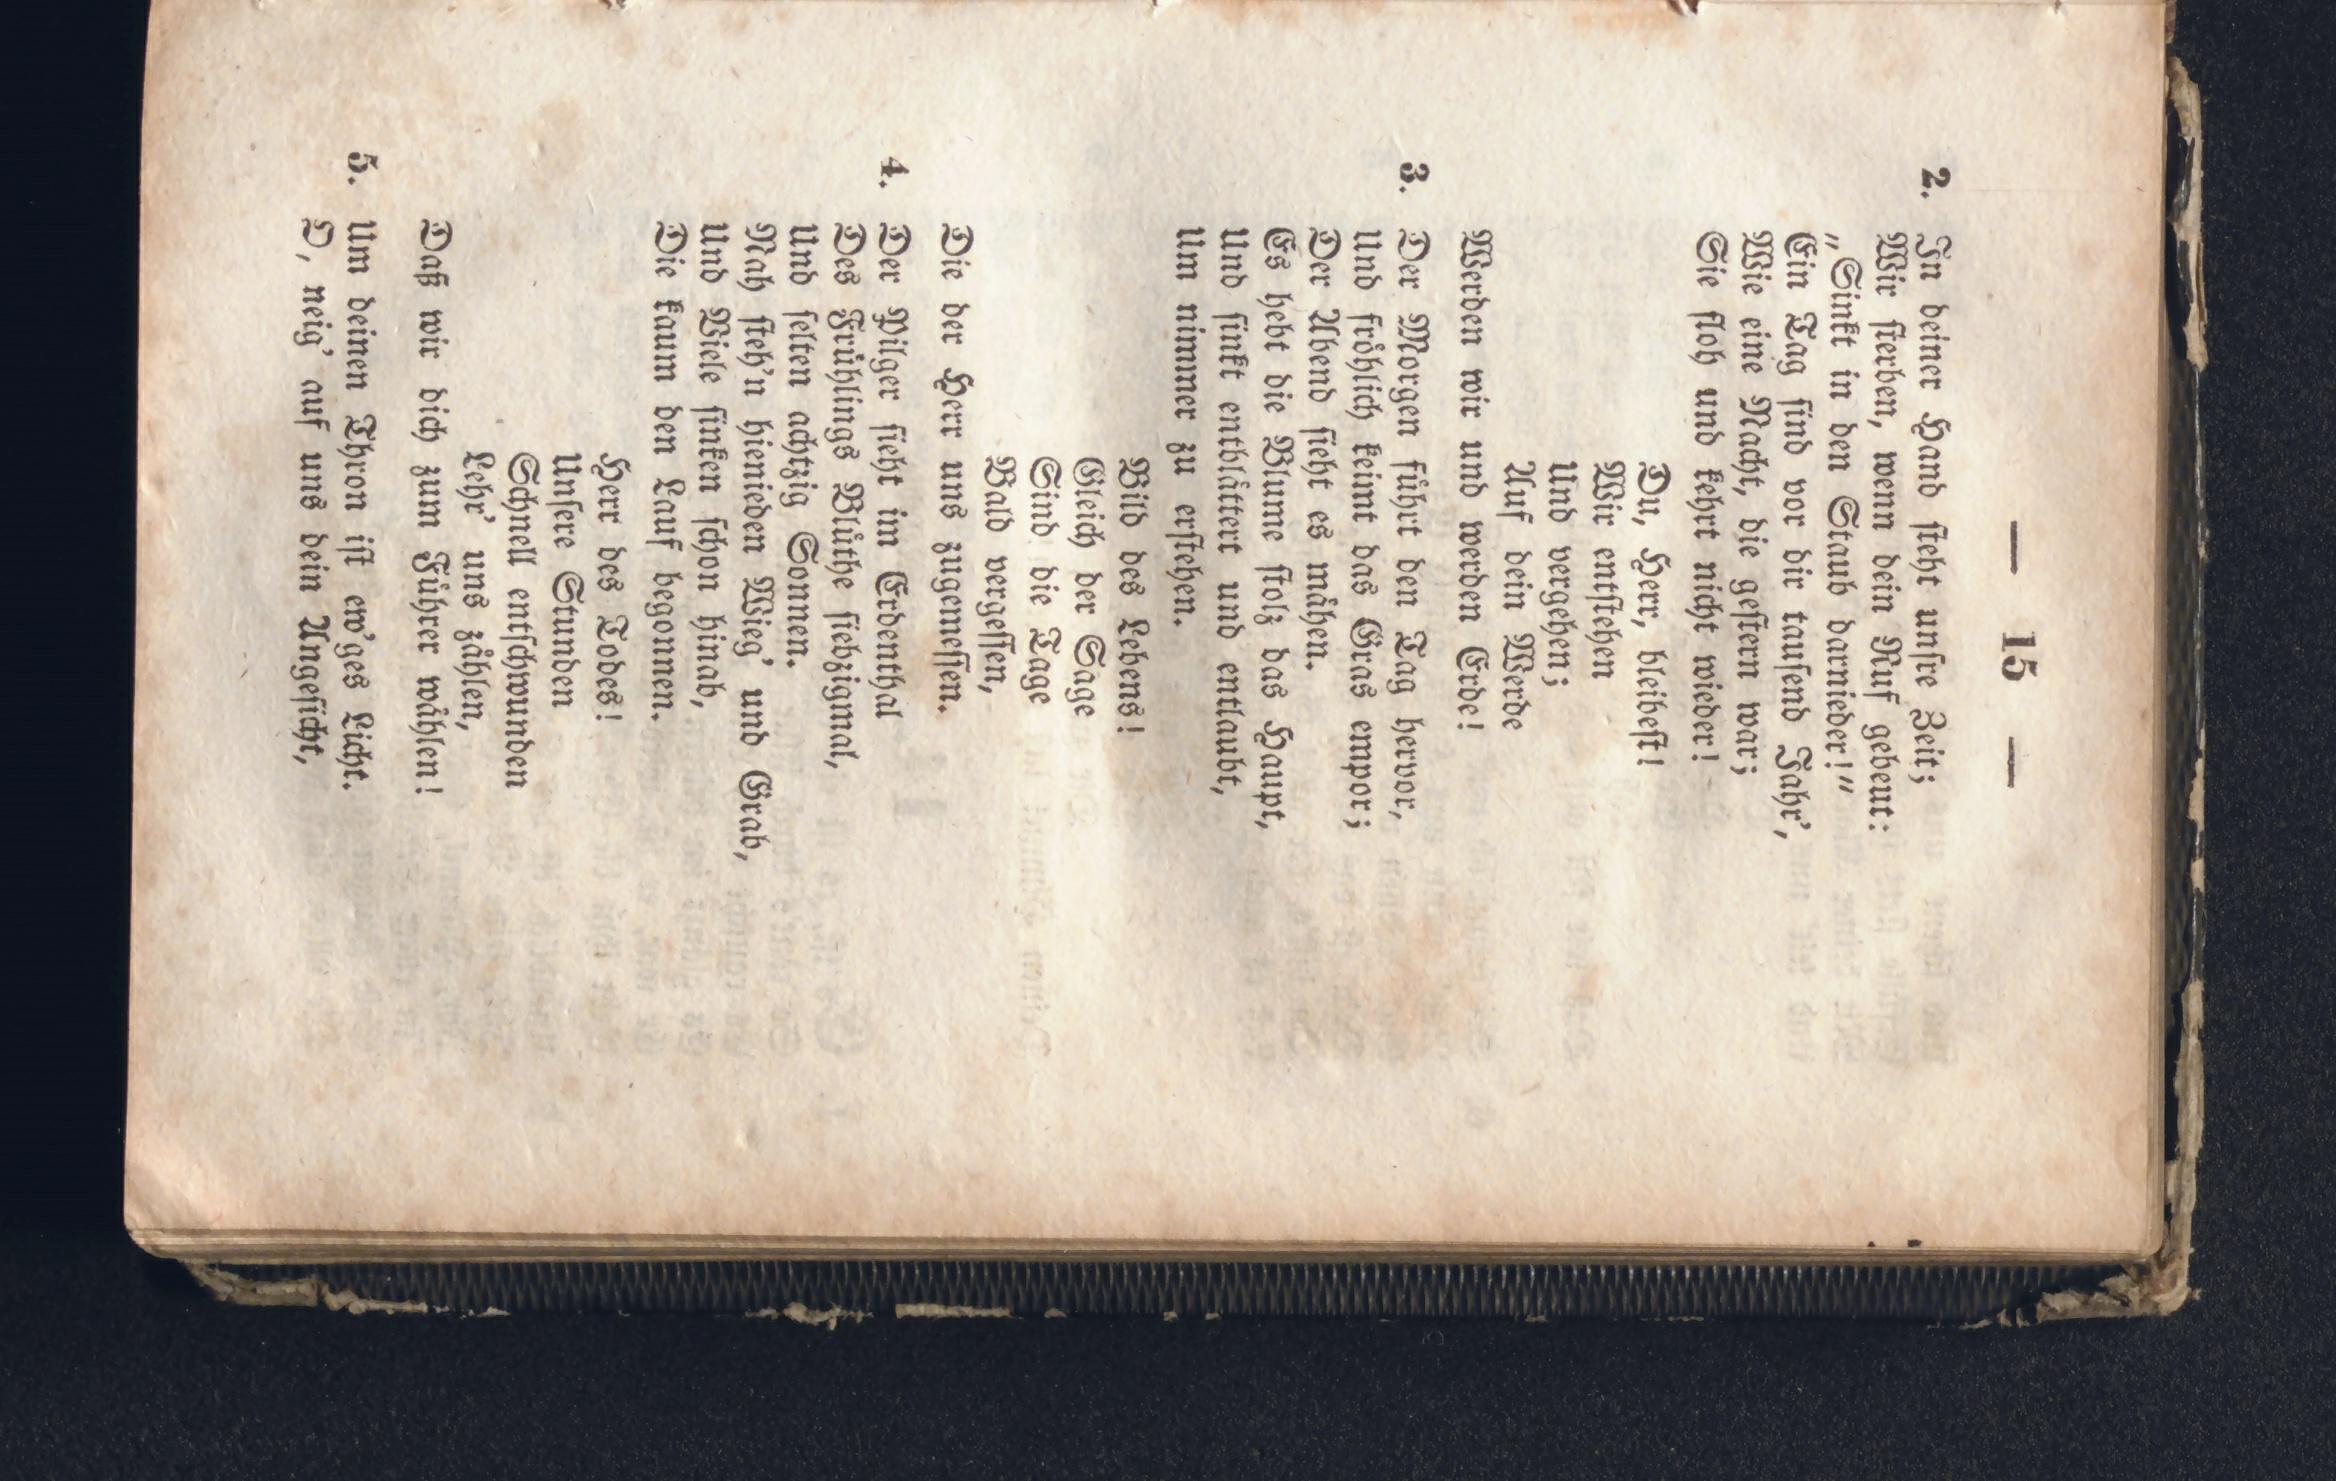 — 15 —
2. In deiner Hand steht unsre Zeit;
Wir sterben, wenn dein Ruf gebeut:
„Sinkt in den Staub darnieder!“
Ein Tag sind vor dir tausend Jahr',
Wie eine Nacht, die gestern war;
Sie floh und kehrt nicht wieder!
Du, Herr, bleibest!
Wir entstehen
Und vergehen;
Auf dein Werde
Werden wir und werden Erde!
3. Der Morgen führt den Tag hervor,
Und fröhlich keimt das Gras empor;
Der Abend sieht es mähen.
Es hebt die Blume stolz das Haupt,
Und sinkt entblättert und entlaubt,
Um nimmer zu erstehen.
Bild des Lebens!
Gleich der Sage
Sind die Tage
Bald vergessen,
Die der Herr uns zugemessen.
4. Der Pilger sieht im Erdenthal
Des Frühlings Blüthe siebzigmal,
Und selten achtzig Sonnen.
Nah steh'n hienieden Wieg' und Grab,
Und Viele sinken schon hinab,
Die kaum den Lauf begonnen.
Herr des Todes!
Unsere Stunden
Schnell entschwunden
Lehr' uns zählen,
Daß wir dich zum Führer wählen!
5. Um deinen Thron ist ew'ges Licht.
O, neig' auf uns dein Angesicht,